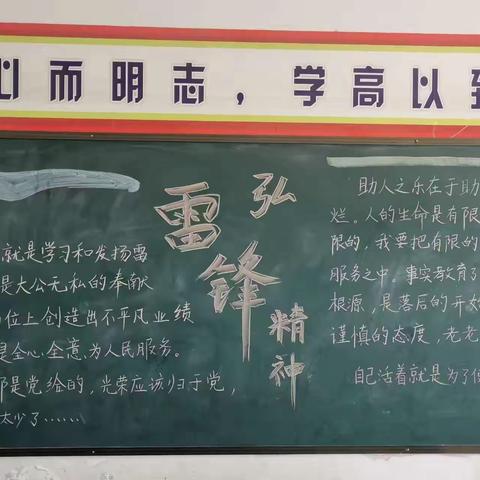 心而明志，学高以至
弘
雷锋
精神
就是学习和发扬雷
是大公无私的奉献
位上创造出不平凡业绩
是全心全意为人民服务。
那是党给的，光荣应该归于党，
太少了……
助人之乐在于助
烂。人的生命是有限
限的，我要把有限的
服务之中。事实教育了
根源，是落后的开始
谨慎的态度，老老
自己活着就是为了使